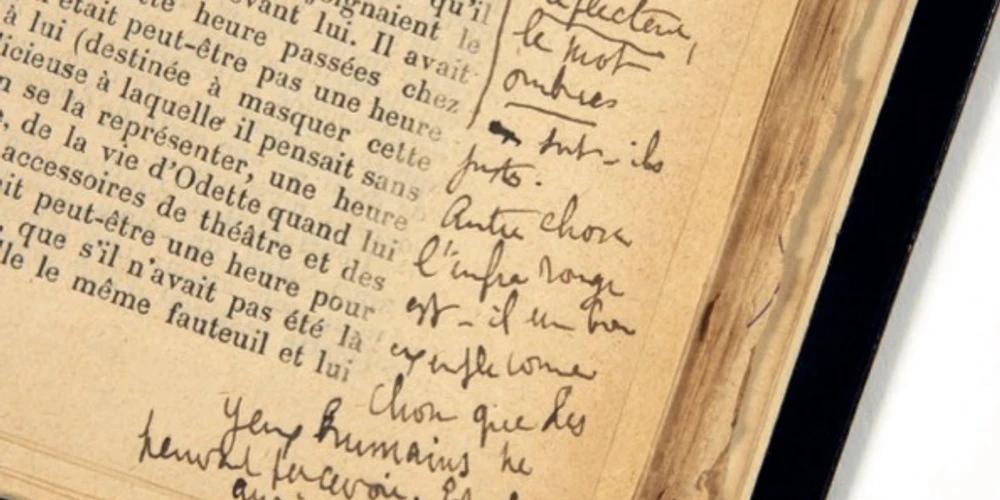 qu'il
joignaient le
devant lui. Il avait
heure passées chez
était peut-être pas une heure
à lui (destinée à masquer cette
licieuse à laquelle il pensait sans
se la représenter, une heure
, de la vie d'Odette quand lui
accessoires de théâtre et des
it peut-être une heure pour
, que s'il n'avait pas été là
lle le même fauteuil et lui
le mot
ombres
sont-ils
justes.
Autre chose
l'infra rouge
est-il un bon
exemple comme
chose que des
yeux humains ne
peuvent percevoir.